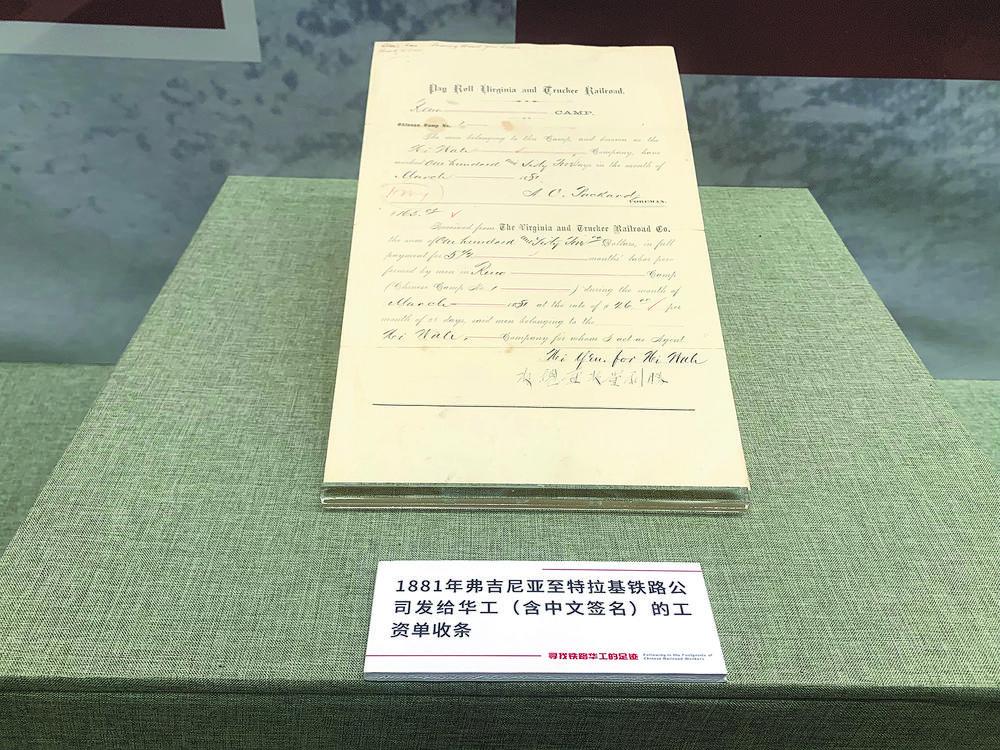 Pay Roll Virginia and Truckee Railroad.
Reno CAMP.
Chinese Camp No.
The men belonging to this Camp and known as the
Hi Wah Company, have
worked One hundred and Sixty days in the month of
March 1881
A. C. Packard
FOREMAN.
Received from The Virginia and Truckee Railroad Co.
the sum of One hundred and Sixty Dollars, in full
payment for months' labor per-
formed by men in Reno Camp
(Chinese Camp No. 1 ) during the month of
March 1881 at the rate of $ 26 per
month of days, said men belonging to the
Hi Wah. Company for whom I act as Agent
Hi Yen. for Hi Wah
1881年弗吉尼亚至特拉基铁路公
司发给华工（含中文签名）的工
资单收条
寻找铁路华工的足迹 Following in the Footprints of
Chinese Railroad Workers